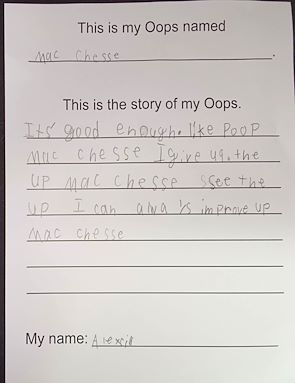 This is my Oops named
mac chesse.
This is the story of my Oops.
Its good enough. like poop
mac chesse I give up. the
up mac chesse ssee the
up I can always improve up
mac chesse
My name: